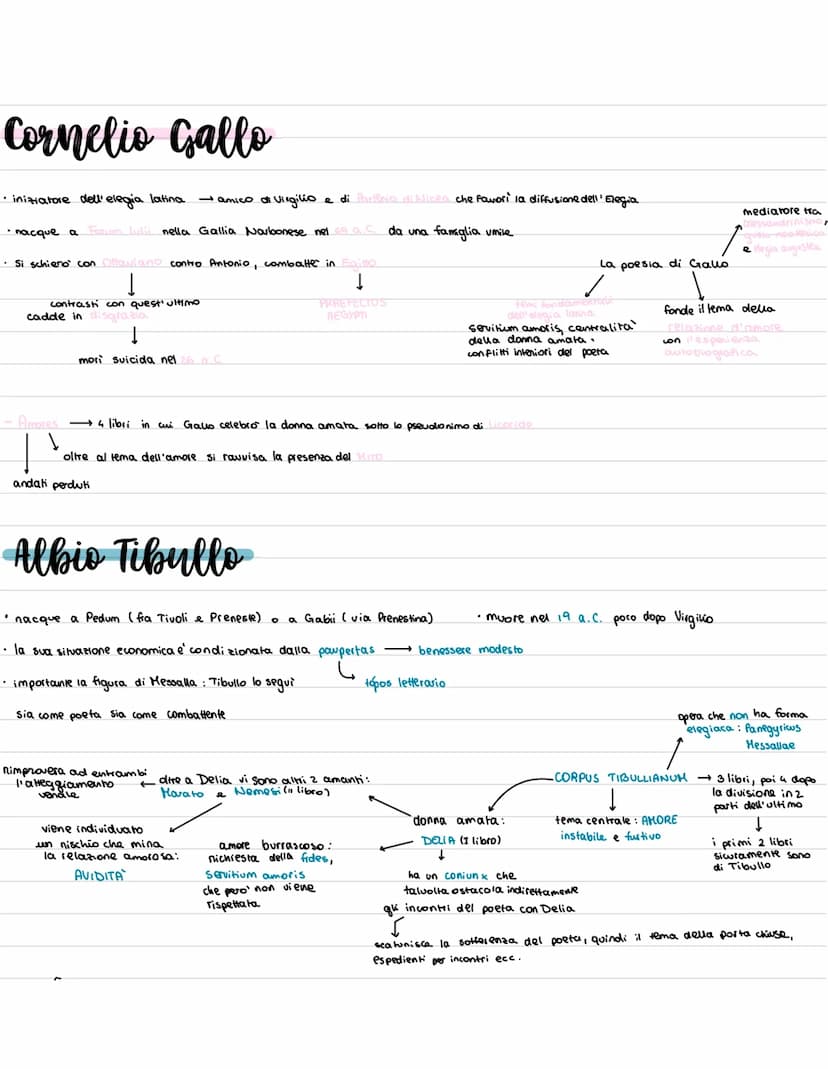 Cornelio Gallo
· iniziatore dell'elegia latina → amico di Virgilio e di Partenio di Nicea che favorì la diffusione dell'Elegia
· nacque a Forum Iulii nella Gallia Narbonese nel 69 a.C. da una famiglia umile
· si schierò con Ottaviano contro Antonio, combatté in Egitto
contrasti con quest'ultimo
cadde in disgrazia
morì suicida nel 26 a.C.
PRAEFECTUS
AEGYPTI
La poesia di Gallo
mediatore tra
alessandrinismo,
gusto neoterico
e elegia augustea
temi fondamentali
dell'elegia latina
servitium amoris, centralità
della donna amata,
conflitti interiori del poeta
fonde il tema della
relazione d'amore
con l'esperienza
autobiografica
- Amores → 4 libri in cui Gallo celebrò la donna amata sotto lo pseudonimo di Licoride
oltre al tema dell'amore si ravvisa la presenza del Mito
andati perduti
Albio Tibullo
· nacque a Pedum (fra Tivoli e Preneste) o a Gabii (via Prenestina)
· muore nel 19 a.C. poco dopo Virgilio
· la sua situazione economica e' condizionata dalla paupertas → benessere modesto
tópos letterario
· importante la figura di Messalla: Tibullo lo seguì
sia come poeta sia come combattente
opera che non ha forma
elegiaca: Panegyricus
Messallae
CORPUS TIBULLIANUM → 3 libri, poi 4 dopo
la divisione in 2
parti dell'ultimo
i primi 2 libri
sicuramente sono
di Tibullo
tema centrale: AMORE
instabile e furtivo
donna amata:
DELIA (I libro)
ha un coniunx che
talvolta ostacola indirettamente
gli incontri del poeta con Delia
scaturisce la sofferenza del poeta, quindi il tema della porta chiusa,
espedienti per incontri ecc.
oltre a Delia vi sono altri 2 amanti:
Marato e Nemesi (II libro)
rimprovera ad entrambi
l'atteggiamento
venale
viene individuato
un rischio che mina
la relazione amorosa:
AVIDITA'
amore burrascoso:
richiesta della fides,
servitium amoris
che però non viene
rispettata